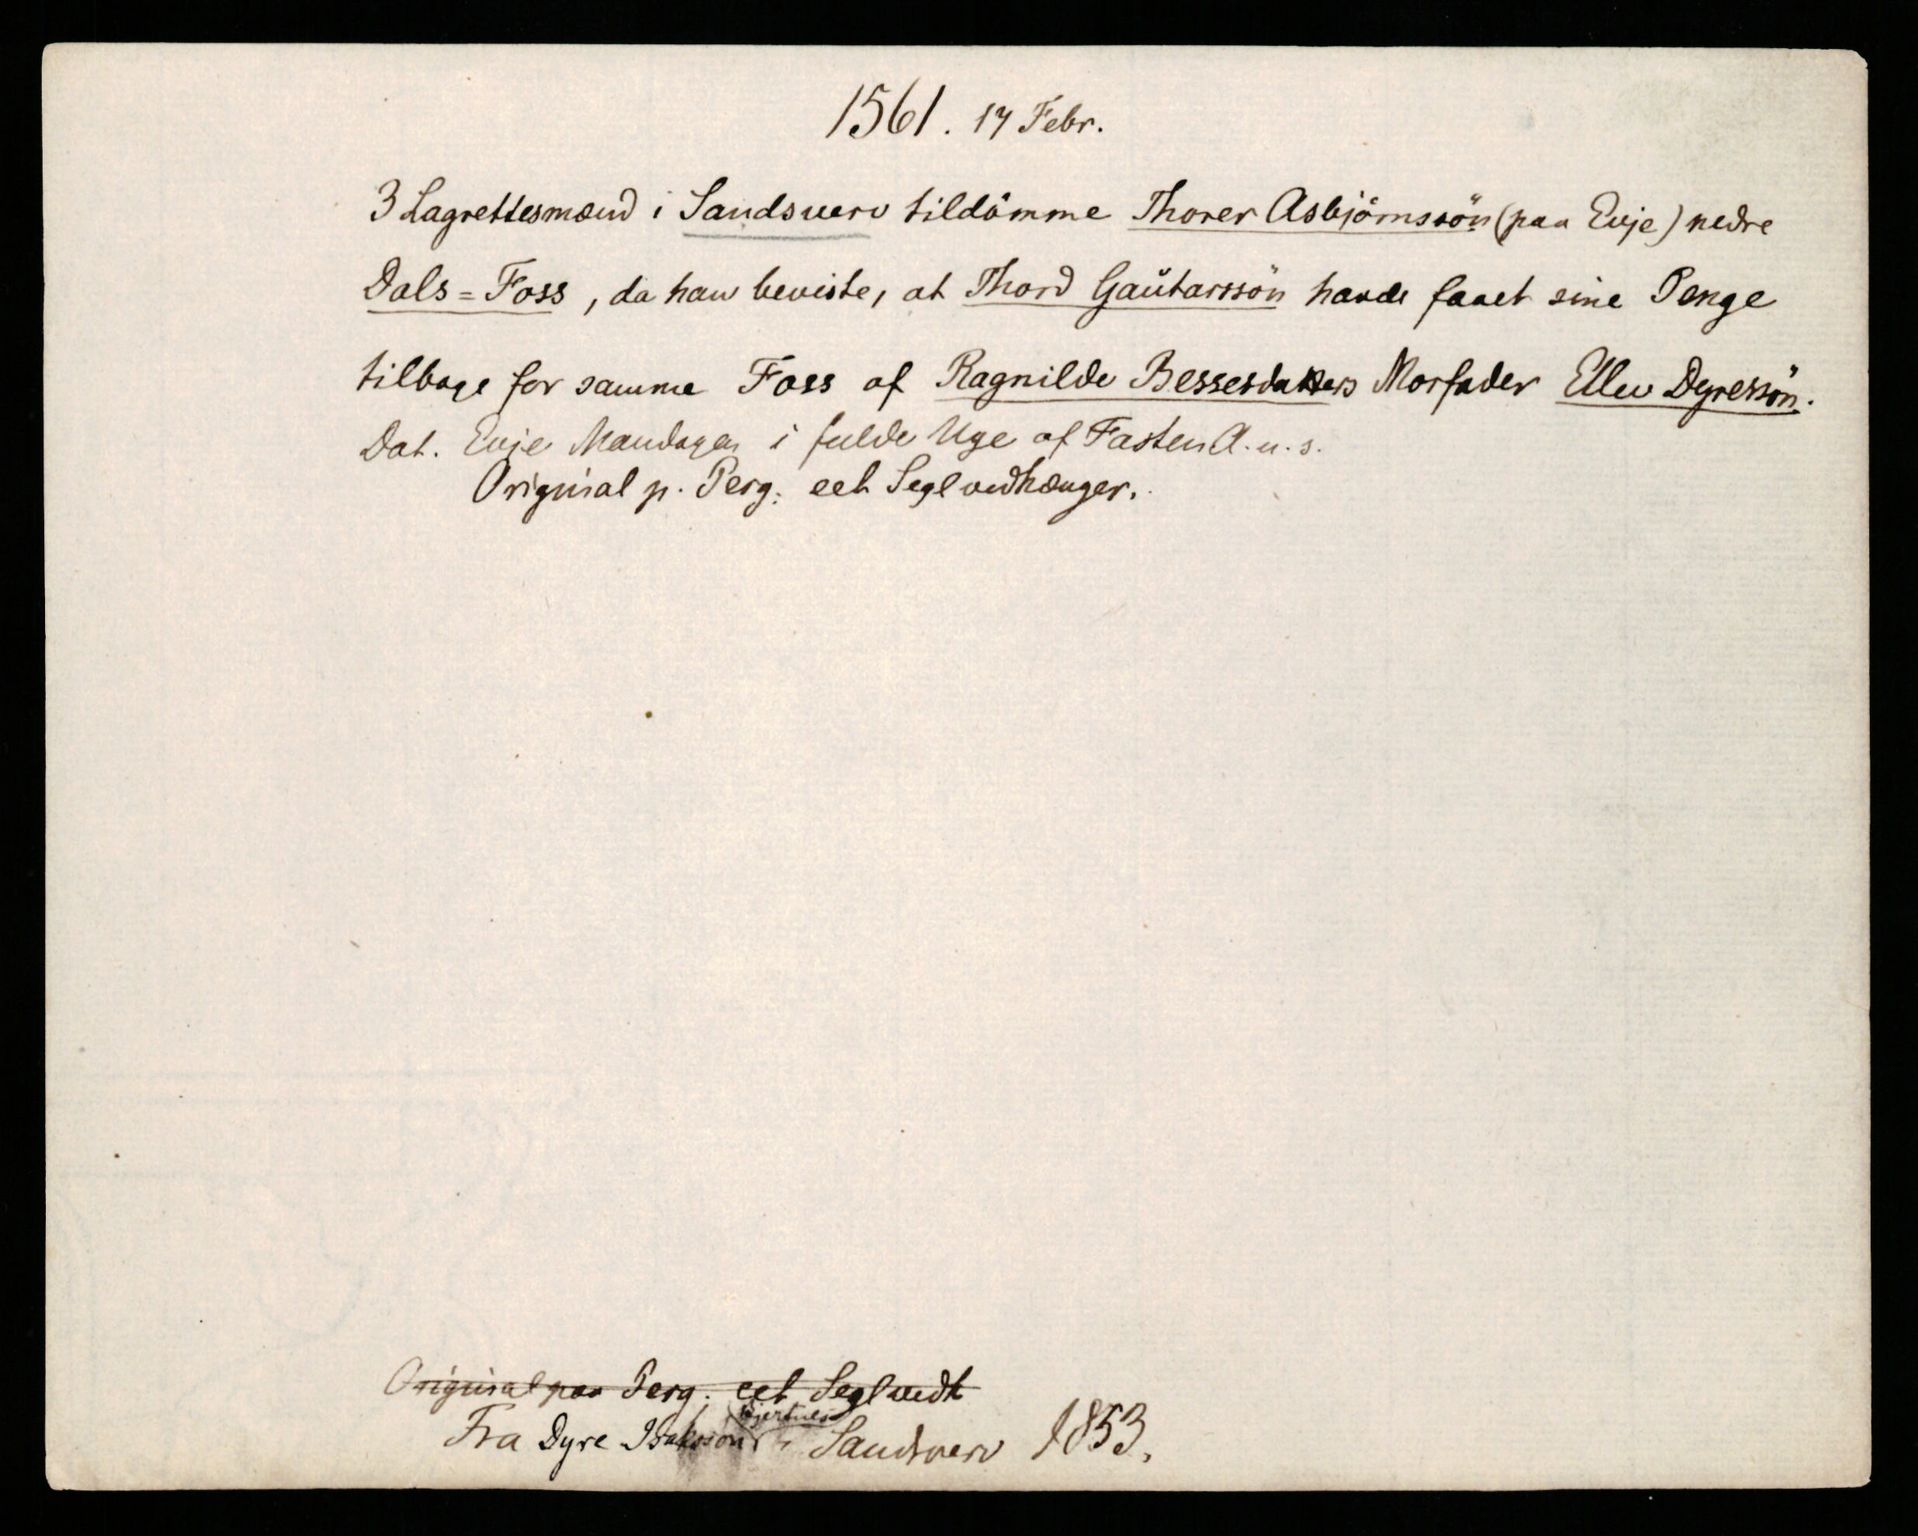 1561. 17 Febr.
3 Lagrettesmænd i Sandsverv tildömme Thorer Asbjörnssön (paa Evje) nedre
Dals=Foss, da han beviste, at Thord Gautarssön havde faaet sine Penge
tilbage for samme Foss af Ragnilde Bessesdatters Morfader Ellev Dyressön.
Dat. Evje Mandagen i fulde Uge af Fasten A. u. s.
Original p. Perg. eet Segl vedhænger.
Original paa Perg. eet Segl vedh
Bjertnes
Fra Dyre Isakssön i Sandsverv 1853.